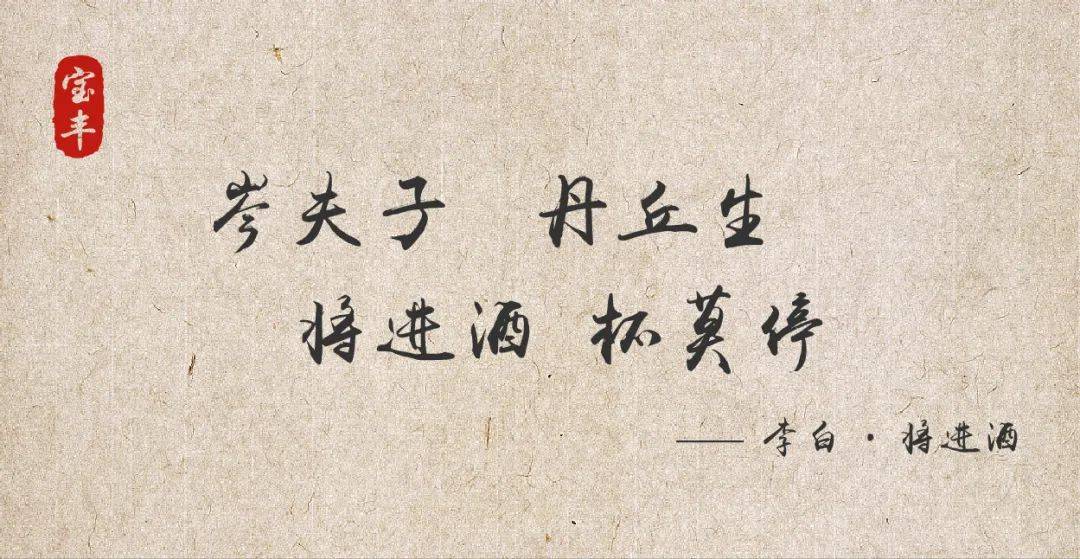 宝丰
岑夫子 丹丘生
将进酒 杯莫停
—— 李白·将进酒